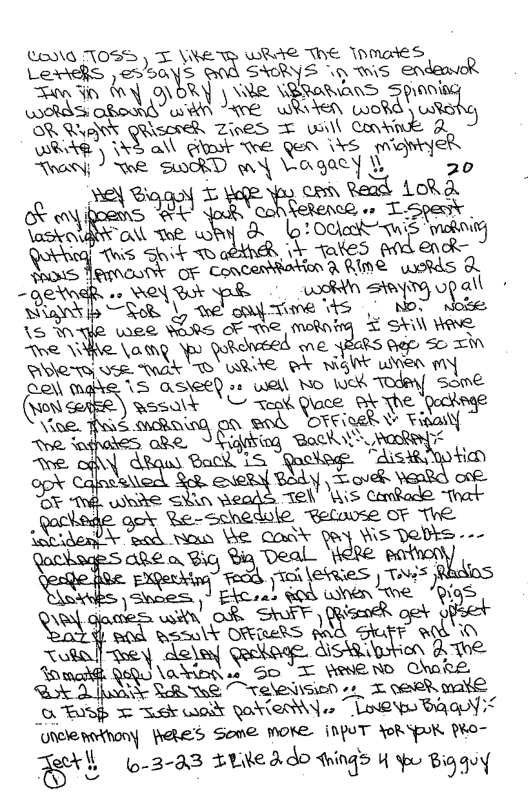 could TOSS, I like to write the inmates
Letters, essays and storys in this endeavor
I'm in my glory, like librarians spinning
words around with the writen word, wrong
or Right prisoner zines I will continue 2
write, its all about the pen its mightyer
Than the sword my Lagacy !!
20
Hey Bigguy I Hope you can Read 1 or 2
of my poems at your conference.. I spent
last night all the way 2 6:Oclock This morning
putting This shit Together it takes and enor-
mous amount of concentration 2 Rime words 2
-gether.. Hey But your worth staying up all
Night for ! The only Time its No. Noise
is in the wee hours of the morning I still Have
The little lamp you purchased me years Ago so I'm
Able to use that To write At Night when my
cell mate is asleep.. well No luck Today some
(NON sense) Assult Took place At the package
line This morning on and officer !! Finally
The inmates are fighting Back !! Hooray
The only draw Back is package distribution
got cancelled for every Body, I over Heard one
of the white skin Heads Tell His comrade That
package got Re-schedule Because of The
incident And Now He can't pay His Debts...
packages are a Big Big Deal Here Anthony
people are Expecting Food, Toiletries, T.v.'s, Radios
clothes, shoes, Etc... And when the pigs
play games with our stuff, prisoner get upset
eazy And Assult officers And stuff And in
Turn They delay package distribution 2 The
inmate population.. So I Have No choice
But 2 wait for The Television.. I never make
a Fuss I Just wait patiently.. Love you Bigguy
uncle Anthony Here's some more input for your pro-
Ject !! 6-3-23 I Like 2 do Thing's 4 you Bigguy
1